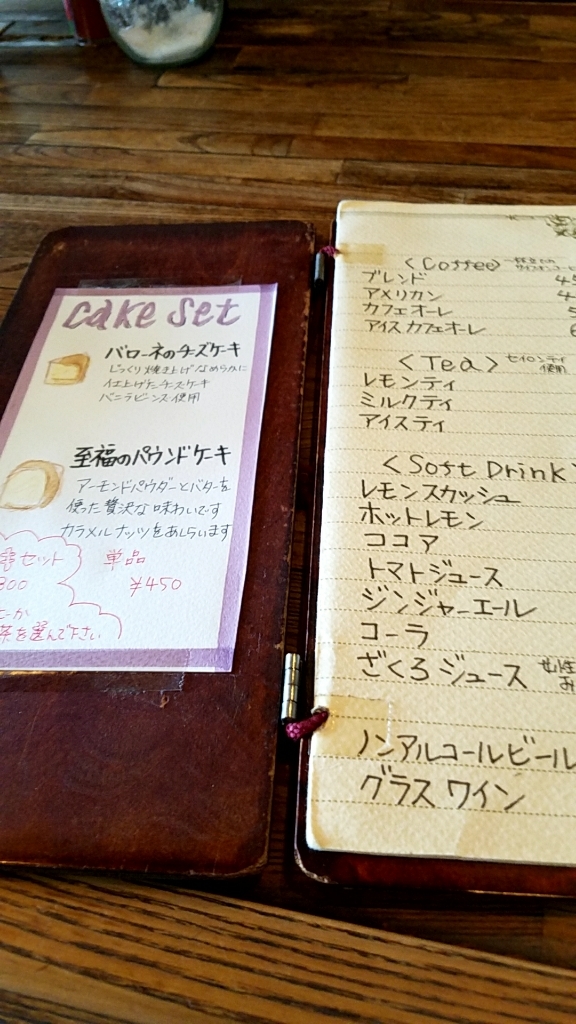 cake set
バローネのチーズケーキ
じっくり焼き上げなめらかに
仕上げたチーズケーキ
バニラビーンズ使用
至福のパウンドケーキ
アーモンドパウダーとバターを
使った贅沢な味わいです
カラメルナッツをあしらいます
セット 単品
800 ¥450
茶を選んで下さい
<Coffee>
ブレンド 4
アメリカン 4
カフェオーレ
アイスカフェオーレ
<Tea> セイロンティ
使用
レモンティ
ミルクティ
アイスティ
<Soft Drink>
レモンスカッシュ
ホットレモン
ココア
トマトジュース
ジンジャーエール
コーラ
ざくろジュース
ノンアルコールビール
グラスワイン